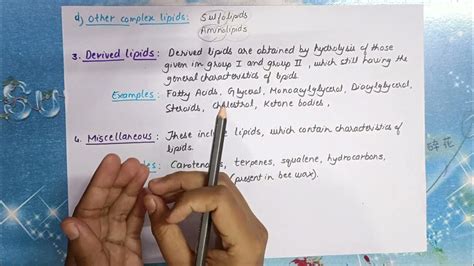 d) Other complex lipids: Sulfolipids
Aminolipids
3. Derived lipids: Derived lipids are obtained by hydrolysis of those
given in group I and group II, which still having the
general characteristics of lipids.
Examples: Fatty Acids, Glycerol, Monoacylglycerol, Diacylglycerol,
Steroids, Cholestrol, Ketone bodies,
4. Miscellaneous: These include lipids, which contain characteristics of
lipids.
les: Carotenoids, terpenes, squalene, hydrocarbons,
(present in bee wax).
Su
碎花